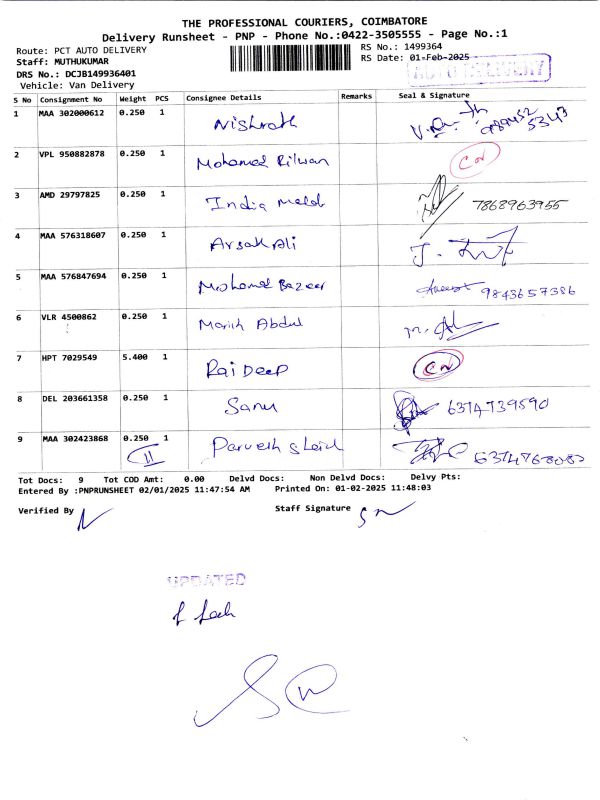 THE PROFESSIONAL COURIERS, COIMBATORE
Delivery Runsheet - PNP - Phone No.:0422-3505555 - Page No.:1
Route: PCT AUTO DELIVERY
RS No.: 1499364
Staff: MUTHUKUMAR
RS Date: 01-Feb-2025
DRS No.: DCJB149936401
AUTO DELIVERY
Vehicle: Van Delivery
S No Consignment No Weight PCS Consignee Details Remarks Seal & Signature
1 MAA 302000612 0.250 1 Nishrath 989452 5343
2 VPL 950882878 0.250 1 Mohamed Rilwan CN
3 AMD 29797825 0.250 1 India 7868963955
4 MAA 576318607 0.250 1 Arsath Ali
5 MAA 576847694 0.250 1 Mohamed Bazeer 9843657386
6 VLR 4500862 0.250 1 Abdul
7 HPT 7029549 5.400 1 RajDeep CN
8 DEL 203661358 0.250 1 Sanu 6374739590
9 MAA 302423868 0.250 1 Parvesh
II
Tot Docs: 9 Tot COD Amt: 0.00 Delvd Docs: Non Delvd Docs: Delvy Pts:
Entered By :PNPRUNSHEET 02/01/2025 11:47:54 AM Printed On: 01-02-2025 11:48:03
Verified By
Staff Signature
UPDATED